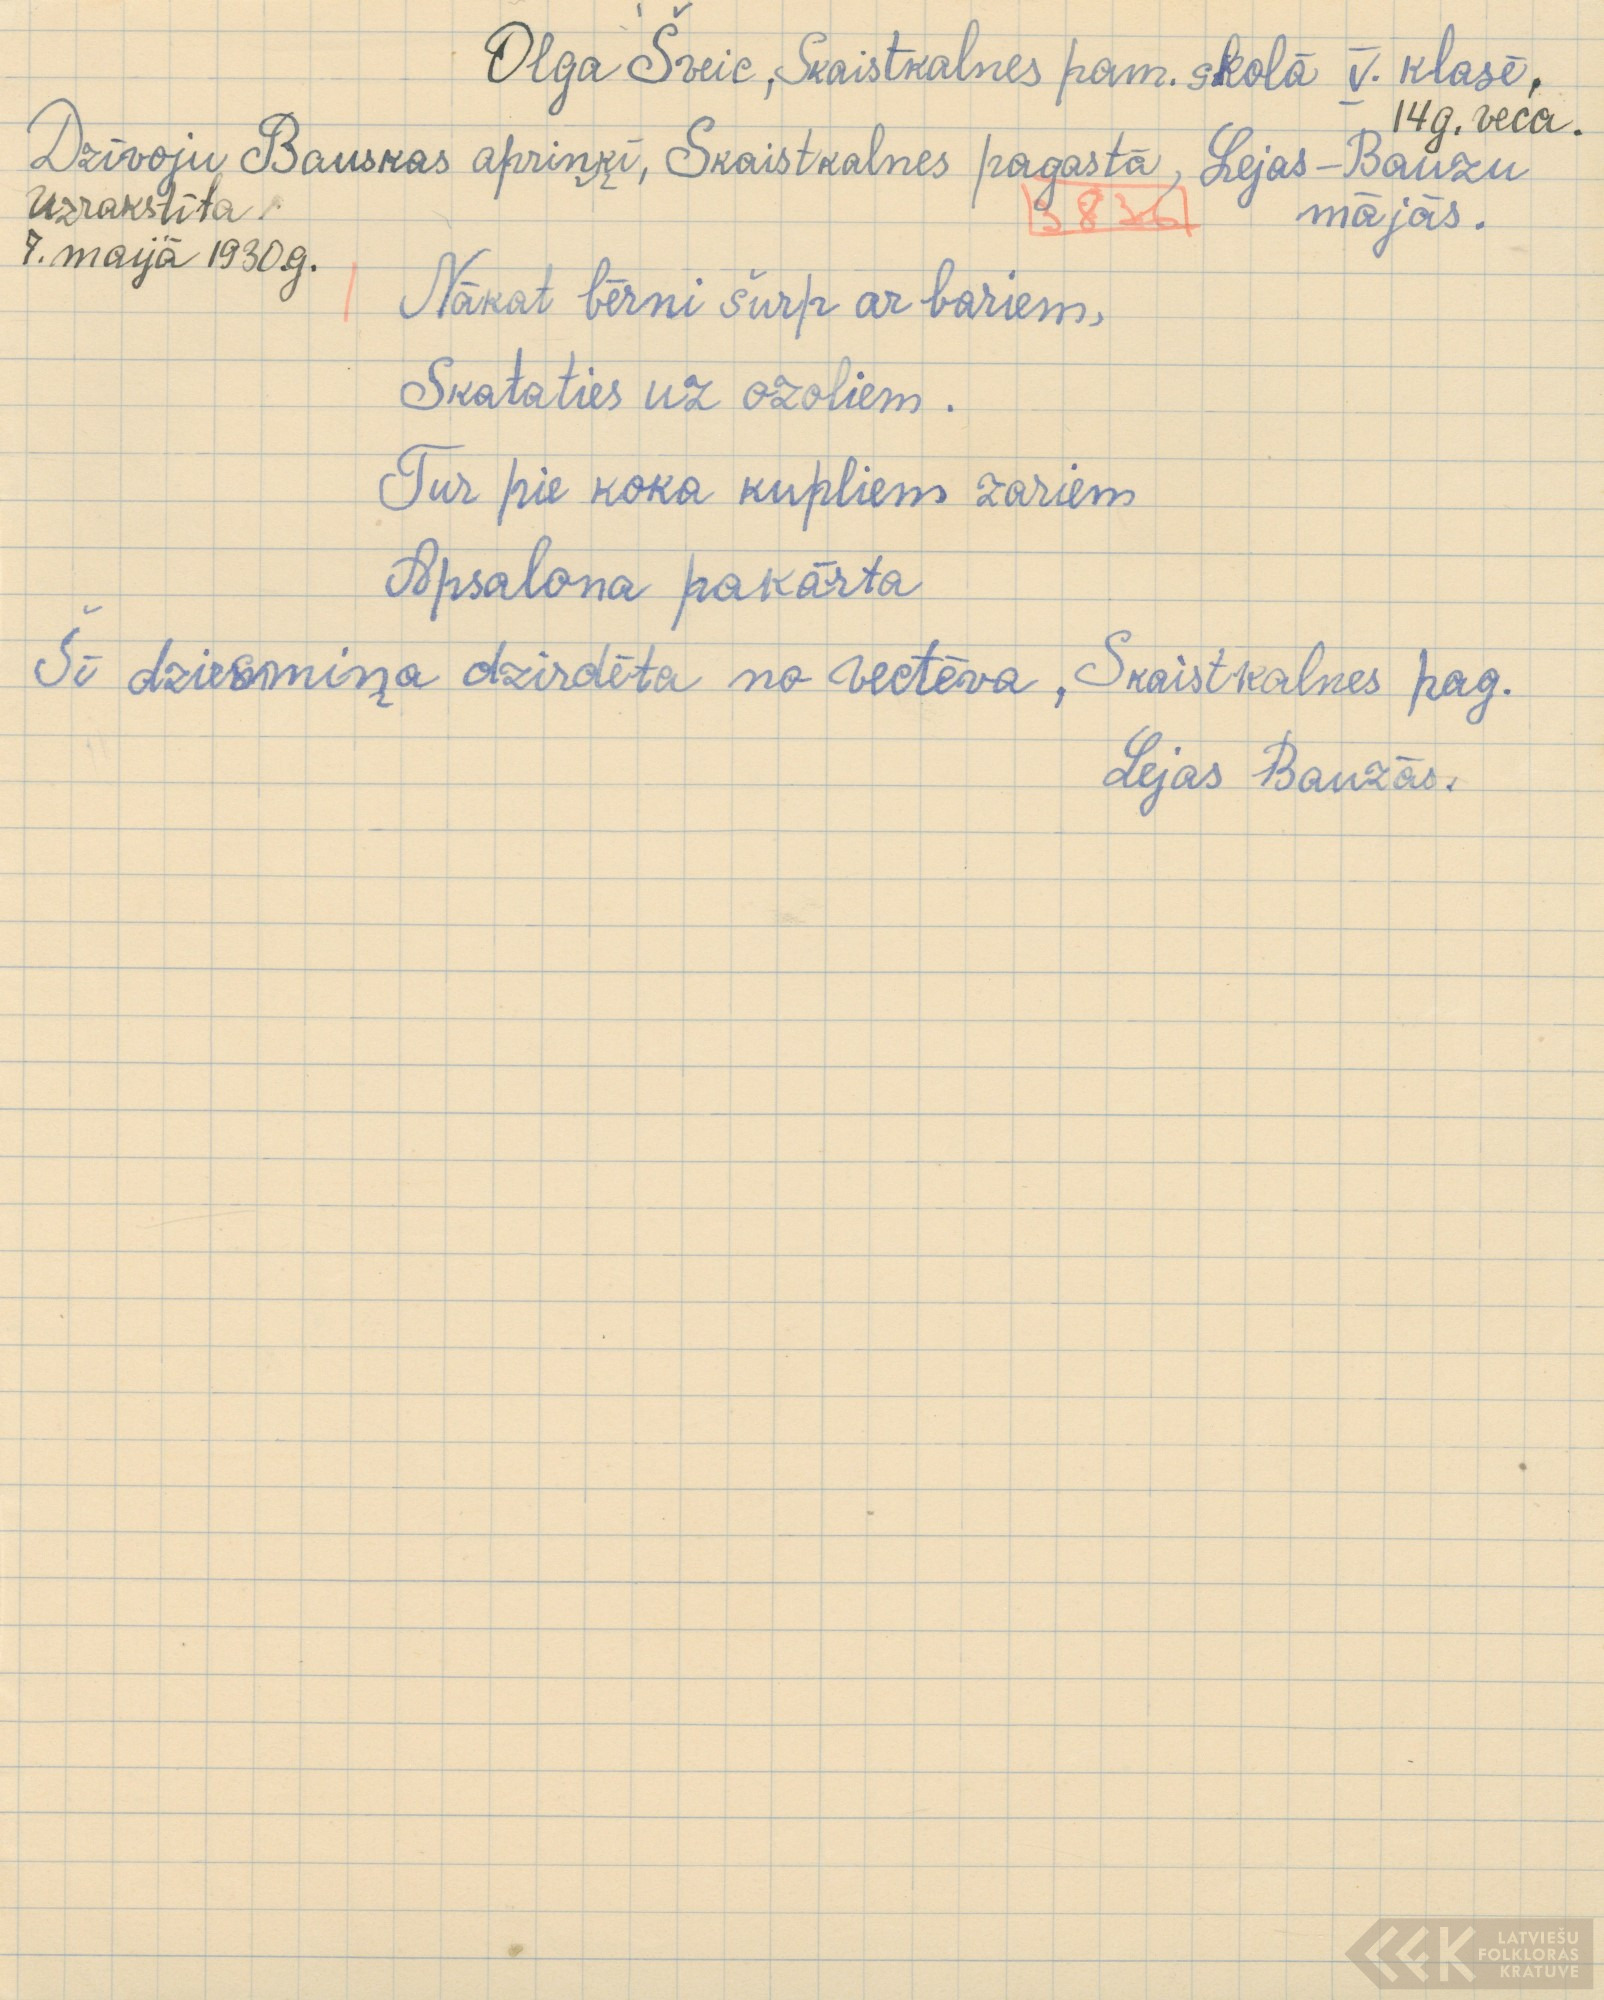 Olga Šveic, Skaistkalnes pam. skolā V. klasē,
14g. veca.
Dzīvoju Bauskas apriņķī, Skaistkalnes pagastā, Lejas-Bauzu
mājās.
Uzrakstīta
7. maijā 1930.g.
3836
Nākat bērni šurp ar bariem,
Skataties uz ozoliem.
Tur pie koka kupliem zariem
Apsalona pakārta
Šī dziesmiņa dzirdēta no vectēva, Skaistkalnes pag.
Lejas Bauzās.
LATVIEŠU
FOLKLORAS
KRATUVE